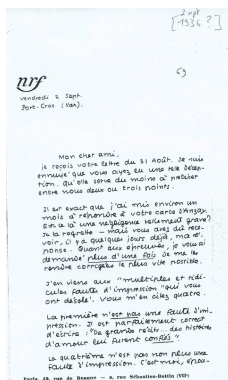 [2 sept
1936 ?]
nrf
69
vendredi 2 Sept.
Port-Cros (Var).
Mon cher ami,
je reçois votre lettre du 31 Août. Je suis
ennuyé que vous ayez eu une telle décep-
tion. qu'elle serve du moins à préciser
entre nous deux ou trois points.
Il est exact que j'ai mis environ un
mois à répondre à votre carte
Est-ce là une négligence tellement grave?
Je la regrette — mais vous avez dû rece-
voir, il y a quelques jours déjà, ma ré-
ponse. Quant aux épreuves, je vous ai
demandé plus d'une fois de me les
rendre corrigées le plus vite possible.
J'en viens aux "multiples et ridi-
cules fautes d'impression" qui vous
ont désolé. Vous m'en citez quatre.
La première n'est pas une faute d'im-
pression. Il est parfaitement correct
d'écrire: "De grands récits... des histoires
d'amour lui furent confiés"
La quatrième n'est pas non plus une
faute d'impression. C'est moi,
Paris, 43, rue de Beaune — 5, rue Sébastien-Bottin (VIIe)